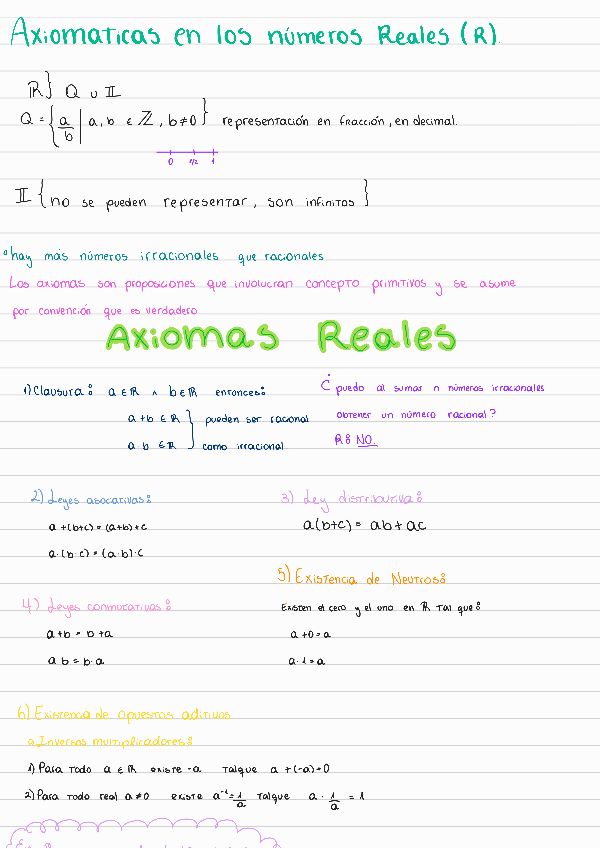 Axiomaticas en los números Reales (R).
ℝ} Q ∪ 𝕀
Q = { a/b | a, b ∈ ℤ, b ≠ 0 } representación en fracción, en decimal.
0 1/2 1
𝕀 { no se pueden representar, son infinitos }
* hay más números irracionales que racionales
Los axiomas son proposiciones que involucran concepto primitivos y se asume
por convención que es verdadero
Axiomas Reales
1) Clausura: a ∈ ℝ ∧ b ∈ ℝ entonces:
a + b ∈ ℝ } pueden ser racional
a · b ∈ ℝ } como irracional.
¿puedo al sumar n números irracionales
obtener un número racional?
R: NO.
2) Leyes asocativas:
a + (b+c) = (a+b) + c
a · (b · c) = (a · b) · c
3) Ley distributiva:
a(b+c) = ab + ac
4) Leyes conmutativas:
a + b = b + a
a b = b · a
5) Existencia de Neutros:
Existen el cero y el uno en ℝ tal que:
a + 0 = a
a · 1 = a
6) Existencia de opuestos aditivos
o Inversos multiplicadores:
1) Para todo a ∈ ℝ existe -a talque a + (-a) = 0
2) Para todo real a ≠ 0 existe a⁻¹ = 1/a talque a · 1/a = 1